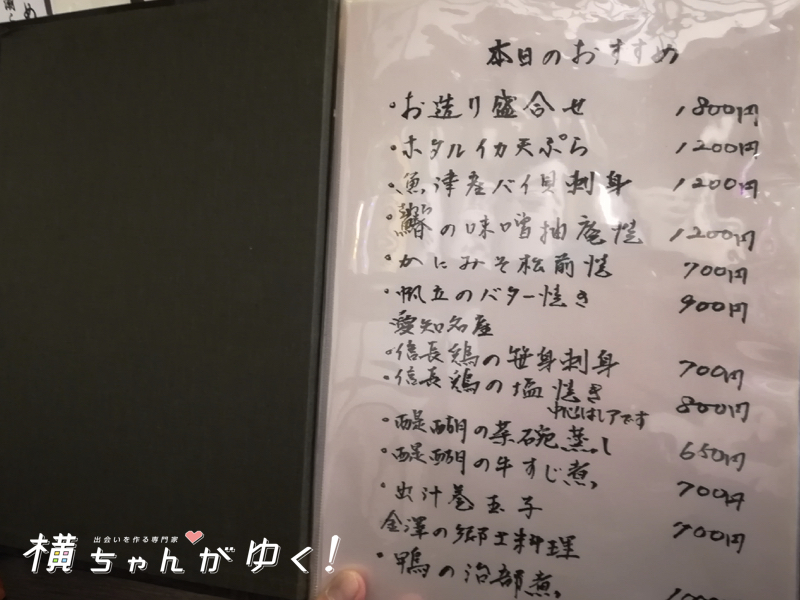 め
本日のおすすめ
・お造り盛合せ 1800円
・ホタルイカ天ぷら 1200円
・魚津産バイ貝刺身 1200円
さわら
・鰆の味噌柚庵焼 1200円
・かにみそ松前焼 700円
・帆立のバター焼き 900円
愛知名産
・信長鶏の笹身刺身 700円
・信長鶏の塩焼き 800円
中心はレアです
・醍醐の茶碗蒸し 650円
・醍醐の牛すじ煮 700円
・出汁巻玉子 700円
金澤の郷土料理
・鴨の治部煮
出会いを作る専門家
横ちゃんがゆく!